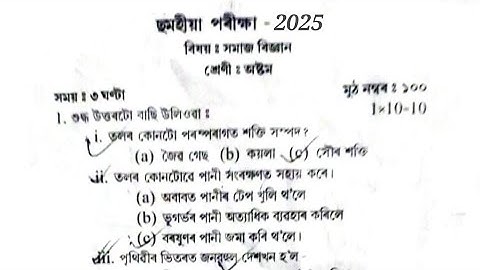 ছমহীয়া পৰীক্ষা - 2025
বিষয় ঃ সমাজ বিজ্ঞান
শ্ৰেণী ঃ অষ্টম
সময় ঃ ৩ ঘণ্টা মুঠ নম্বৰ ঃ ১০০
1. শুদ্ধ উত্তৰটো বাছি উলিওৱা ঃ 1×10=10
i. তলৰ কোনটো পৰম্পৰাগত শক্তি সম্পদ?
(a) জৈৱ গেছ (b) কয়লা (c) সৌৰ শক্তি
ii. তলৰ কোনটোৱে পানী সংৰক্ষণত সহায় কৰে।
(a) অবাবত পানীৰ টেপ খুলি থ'লে
(b) ভূগৰ্ভৰ পানী অত্যাধিক ব্যৱহাৰ কৰিলে
(c) বৰষুণৰ পানী জমা কৰি থ'লে।
iii. পৃথিৱীৰ ভিতৰত জনবহুল দেশখন হ'ল -